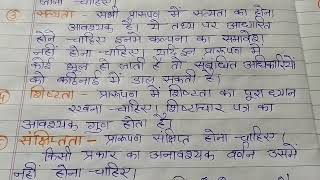 जाना चाहिए।
③ सत्यता - सभी प्रारूपण में सत्यता का होना
आवश्यक है। ये तथ्य पर आधारित
होने चाहिए इनमें कल्पना का समावेश
नहीं होना चाहिए। यदि इन प्रारूपण में
कोई भूल हो जाती है तो सम्बंधित अधिकारियों
को कठिनाई में डाल सकती है।
शिष्टता - प्रारूपण में शिष्टता का पूरा ध्यान
रखना चाहिए। शिष्टाचार पत्र का
आवश्यक गुण होता है।
संक्षिप्तता - प्रारूपण संक्षिप्त होना चाहिए।
किसी प्रकार का अनावश्यक वर्णन उसमें
नहीं होना चाहिए।